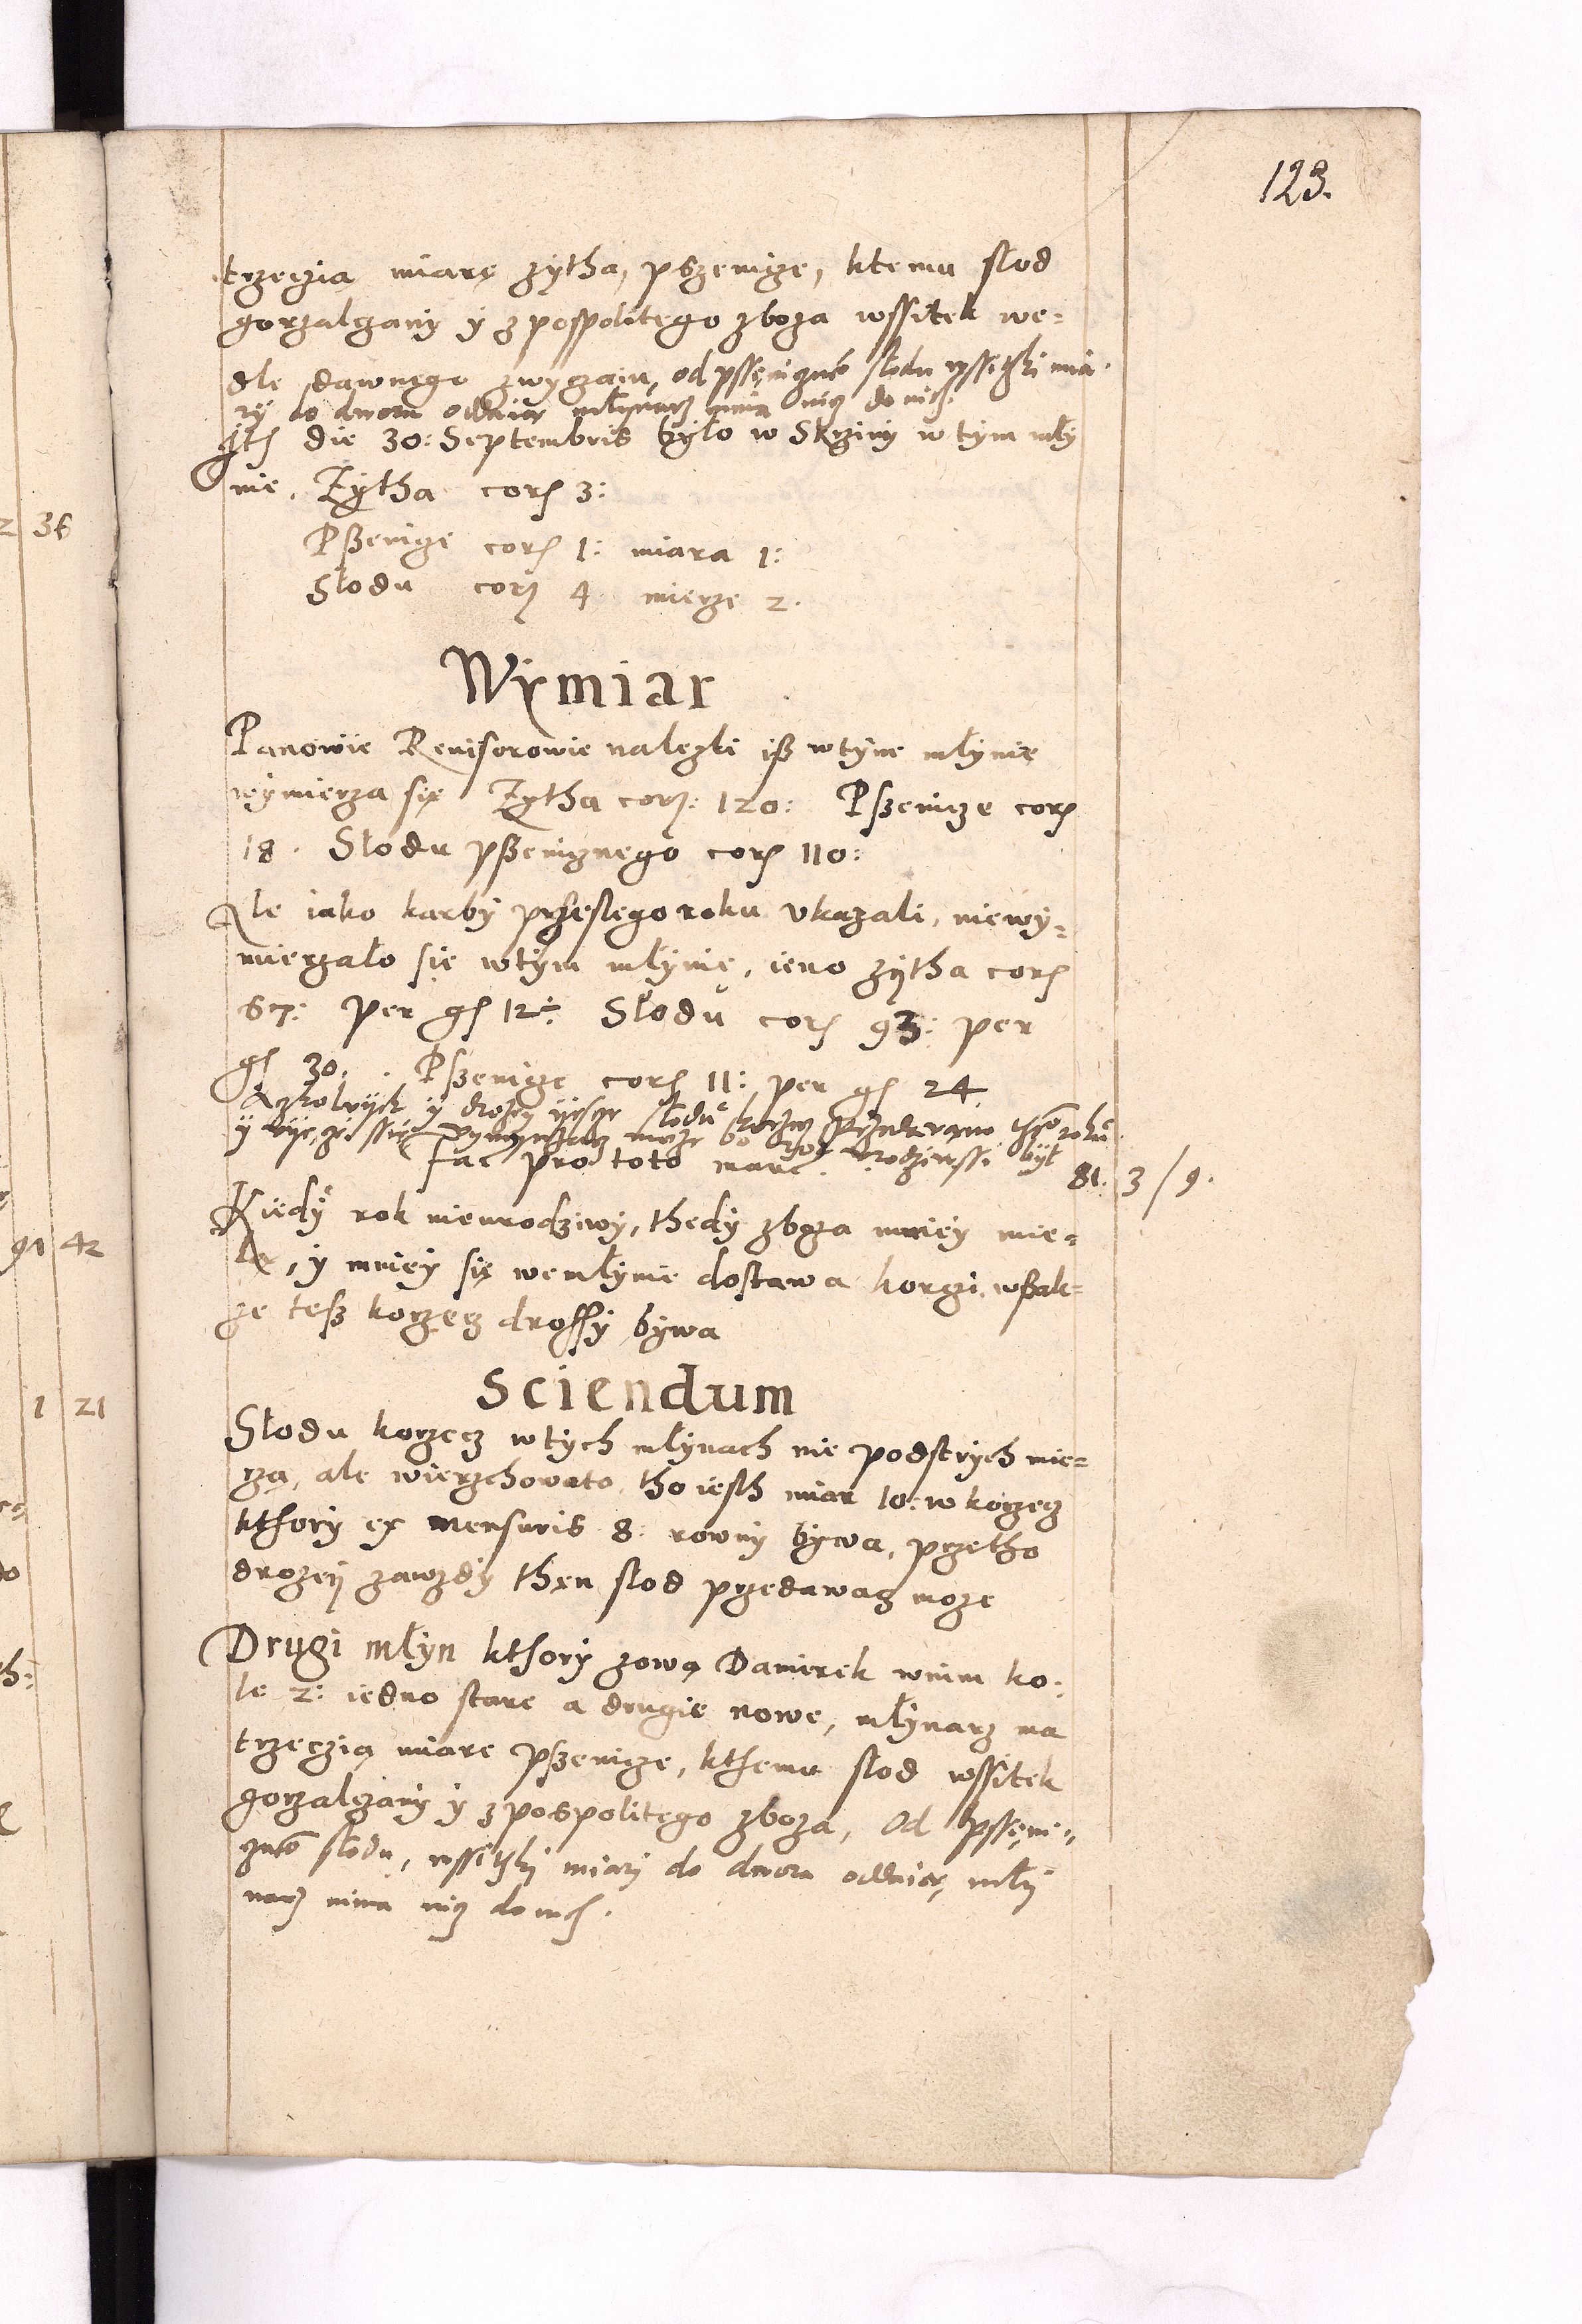 123.
trzeczia miarę zytha, pszenicze, ktemu slod
gorzalczany y z pospolitego zboza wssitek we=
dle dawnego zwyczaiu, od psseniczne° slodu wssitzki mia=
ry do dworu oddaie młynarz nima nicz do nich
Ite[m] die 30: Septembris było w Skrziny w tym mły
nie. Zytha cor[os] 3:
Pßenicze cor[os] 1: miara 1:
Słodu cor[os] 4 mierze 2.
Wymiar
Panowie Reuisorowie nalezli iß w tym młynie
wymierza się Zytha cor[os]: 120: Pßenicze cor[os]
18. Słodu pßenicznego cor[os] 110:
Ale iako karby przeslego roku vkazali, niewy=
mierzało się w tym młynie, ieno zytha cor[os]
67: per g[r] 12: Słodu cor[os] 93: per
g[r] 30. Pßenicze cor[os] 11: per g[r] 24
Aczkolwyek y drozey słodu
y wyęcze ssię moze bo rok vrodziwssi był
fac[it] pro toto marc. 81. 3 / 9.
Kiedy rok nieurodziwy, thedy zboza mniey mie=
lą, y mniey się we młynie dostawa korczi, wßak=
ze teß korzecz drossy bywa
Sciendum
Słodu korzecz w tych młynach nie podstrych mie=
rzą, ale wierzchowato, tho iesth miar 10: w korzecz
kthory ex mensuris 8: rowny bywa, przetho
drozey zawzdy then slod przedawacz moze
Drugi młyn kthory zową Danierek w nim ko=
le 2: iedno stare a drugie nowe, młynarz ma
trzeczią miare pszenicze, kthemu slod wssitek
gorzalczany y z pospolitego zboza, Od psseni=
czne° slodu, wssitzki miary do dworu oddaie, mły
narz nima nicz do nich.
2 36
91 42
1 21